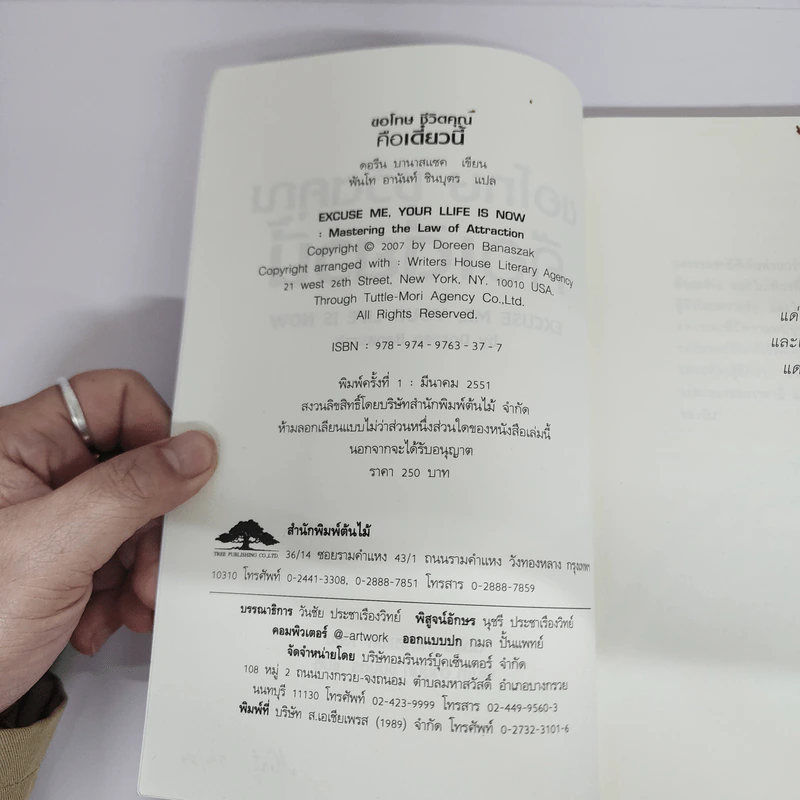 ขอโทษ ชีวิตคุณ
คือเดี๋ยวนี้
ดอรีน บานาสแซค เขียน
พันโท อานันท์ ชินบุตร แปล
EXCUSE ME, YOUR LLIFE IS NOW
: Mastering the Law of Attraction
Copyright © 2007 by Doreen Banaszak
Copyright arranged with : Writers House Literary Agency
21 west 26th Street, New York, NY. 10010 USA.
Through Tuttle-Mori Agency Co.,Ltd.
All Rights Reserved.
ISBN : 978 - 974 - 9763 - 37 - 7
พิมพ์ครั้งที่ 1 : มีนาคม 2551
สงวนลิขสิทธิ์โดยบริษัทสำนักพิมพ์ต้นไม้ จำกัด
ห้ามลอกเลียนแบบไม่ว่าส่วนหนึ่งส่วนใดของหนังสือเล่มนี้
นอกจากจะได้รับอนุญาต
ราคา 250 บาท
สำนักพิมพ์ต้นไม้
TREE PUBLISHING CO.,LTD
36/14 ซอยรามคำแหง 43/1 ถนนรามคำแหง วังทองหลาง กรุงเทพฯ
10310 โทรศัพท์ 0-2441-3308, 0-2888-7851 โทรสาร 0-2888-7859
บรรณาธิการ วันชัย ประชาเรืองวิทย์ พิสูจน์อักษร นุชรี ประชาเรืองวิทย์
คอมพิวเตอร์ @-artwork ออกแบบปก กมล ปั้นแพทย์
จัดจำหน่ายโดย บริษัทอมรินทร์บุ๊คเซ็นเตอร์ จำกัด
108 หมู่ 2 ถนนบางกรวย-จงถนอม ตำบลมหาสวัสดิ์ อำเภอบางกรวย
นนทบุรี 11130 โทรศัพท์ 02-423-9999 โทรสาร 02-449-9560-3
พิมพ์ที่ บริษัท ส.เอเซียเพรส (1989) จำกัด โทรศัพท์ 0-2732-3101-6
แด่